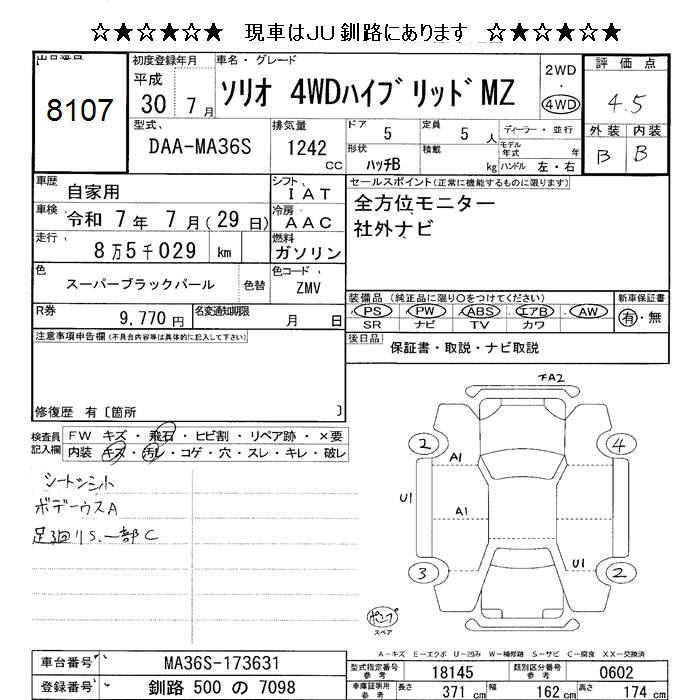 ☆★☆★☆★ 現車はJU釧路にあります ☆★☆★☆★
出品番号
8107
初度登録年月
平成
30 7月
車名・グレード
ソリオ 4WDハイブリッドMZ
2WD
・
4WD
評価点
4.5
外装 内装
B B
型式
DAA-MA36S
排気量
1242
CC
ドア
5
定員
5 人
形状
ハッチB
積載
kg
ディーラー・並行
モデル年式
年
ハンドル 左・右
車歴
自家用
シフト
IAT
車検
令和 7年 7月(29日)
冷房
AAC
走行
8万5千029 km
燃料
ガソリン
色
スーパーブラックパール
色替
色コード
ZMV
セールスポイント(正常に機能するものに限ります)
全方位モニター
社外ナビ
R券
9,770円
名変通知期限
月 日
装備品(純正品に限り○をつけてください)
PS PW ABS エアB AW
SR ナビ TV カワ
新車保証書
有・無
後日品
保証書・取説・ナビ取説
注意事項申告欄(不具合内容等は具体的に記入して下さい)
修復歴 有〔箇所 〕
検査員
記入欄
FW キズ・飛石・ヒビ割・リペア跡・×要
内装 キズ・汚レ・コゲ・穴・スレ・キレ・破レ
シートシミ小
ボデーウスA
足廻リS.一部C
チA2
2
4
A1
U1
A1
U1
3
2
ポンプ
スペア
A-キズ E-エクボ U-凹み W-補修跡 S-サビ C-腐食 XX-交換済
車台番号
MA36S-173631
登録番号
釧路 500 の 7098
型式指定番号
参考
18145
類別区分番号
参考
0602
車庫証明用
参考
長さ
371 cm
幅
162 cm
高さ
174 cm